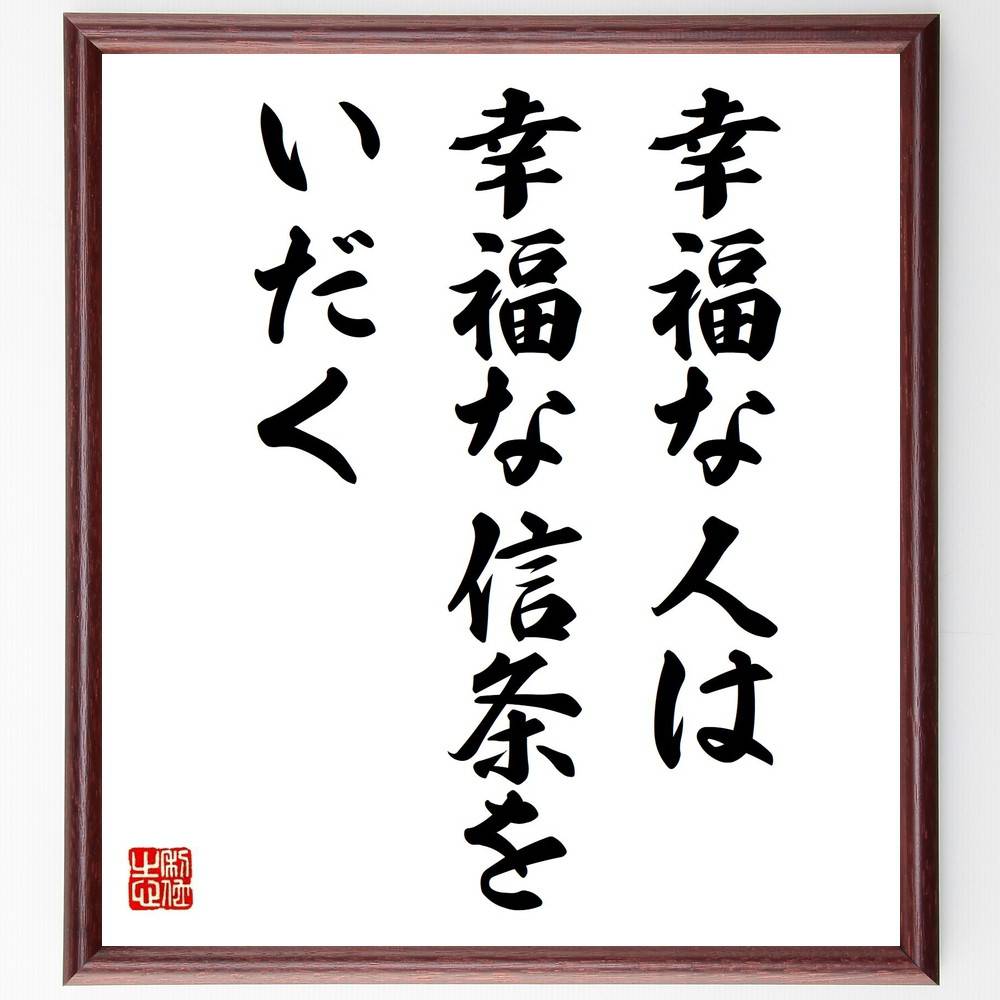 幸福な人は
幸福な信条を
いだく